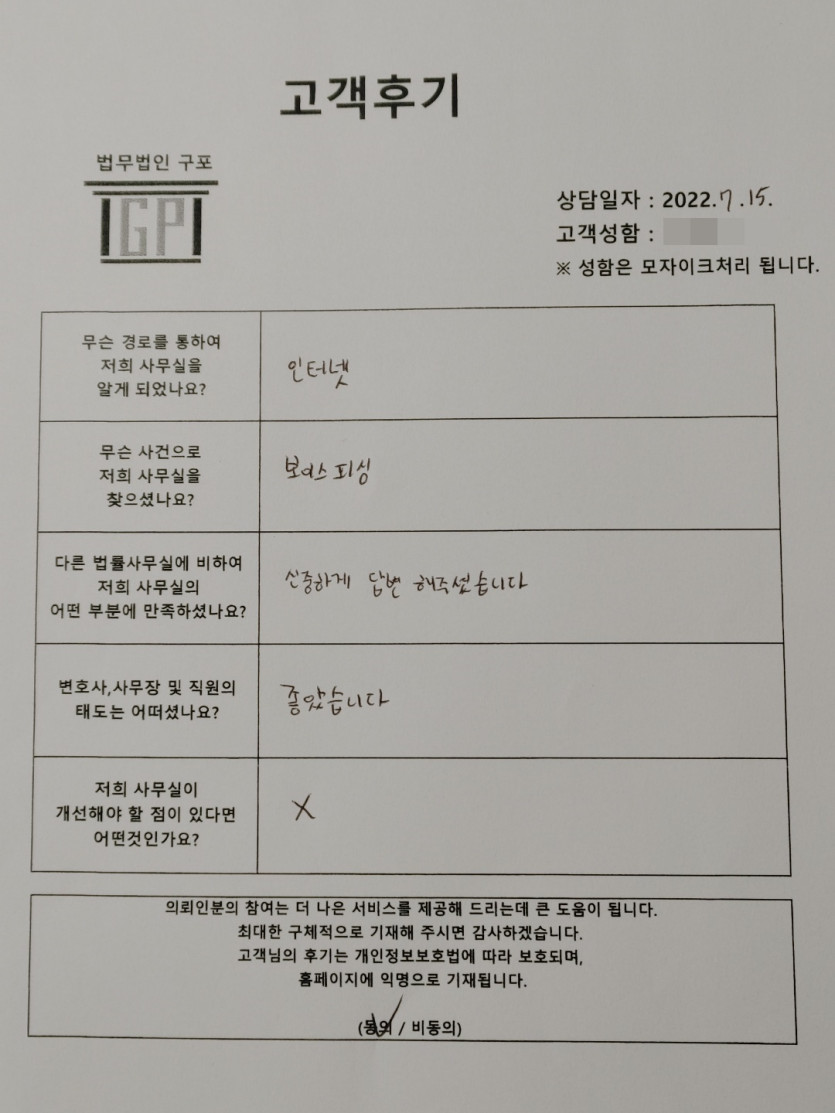 고객후기
법무법인 구포
IGPI
상담일자 : 2022.7.15.
고객성함 :
※ 성함은 모자이크처리 됩니다.
무슨 경로를 통하여
저희 사무실을
알게 되었나요?
인터넷
무슨 사건으로
저희 사무실을
찾으셨나요?
보이스피싱
다른 법률사무실에 비하여
저희 사무실의
어떤 부분에 만족하셨나요?
신중하게 답변 해주셨습니다
변호사,사무장 및 직원의
태도는 어떠셨나요?
좋았습니다
저희 사무실이
개선해야 할 점이 있다면
어떤것인가요?
X
의뢰인분의 참여는 더 나은 서비스를 제공해 드리는데 큰 도움이 됩니다.
최대한 구체적으로 기재해 주시면 감사하겠습니다.
고객님의 후기는 개인정보보호법에 따라 보호되며,
홈페이지에 익명으로 기재됩니다.
(동의 / 비동의)